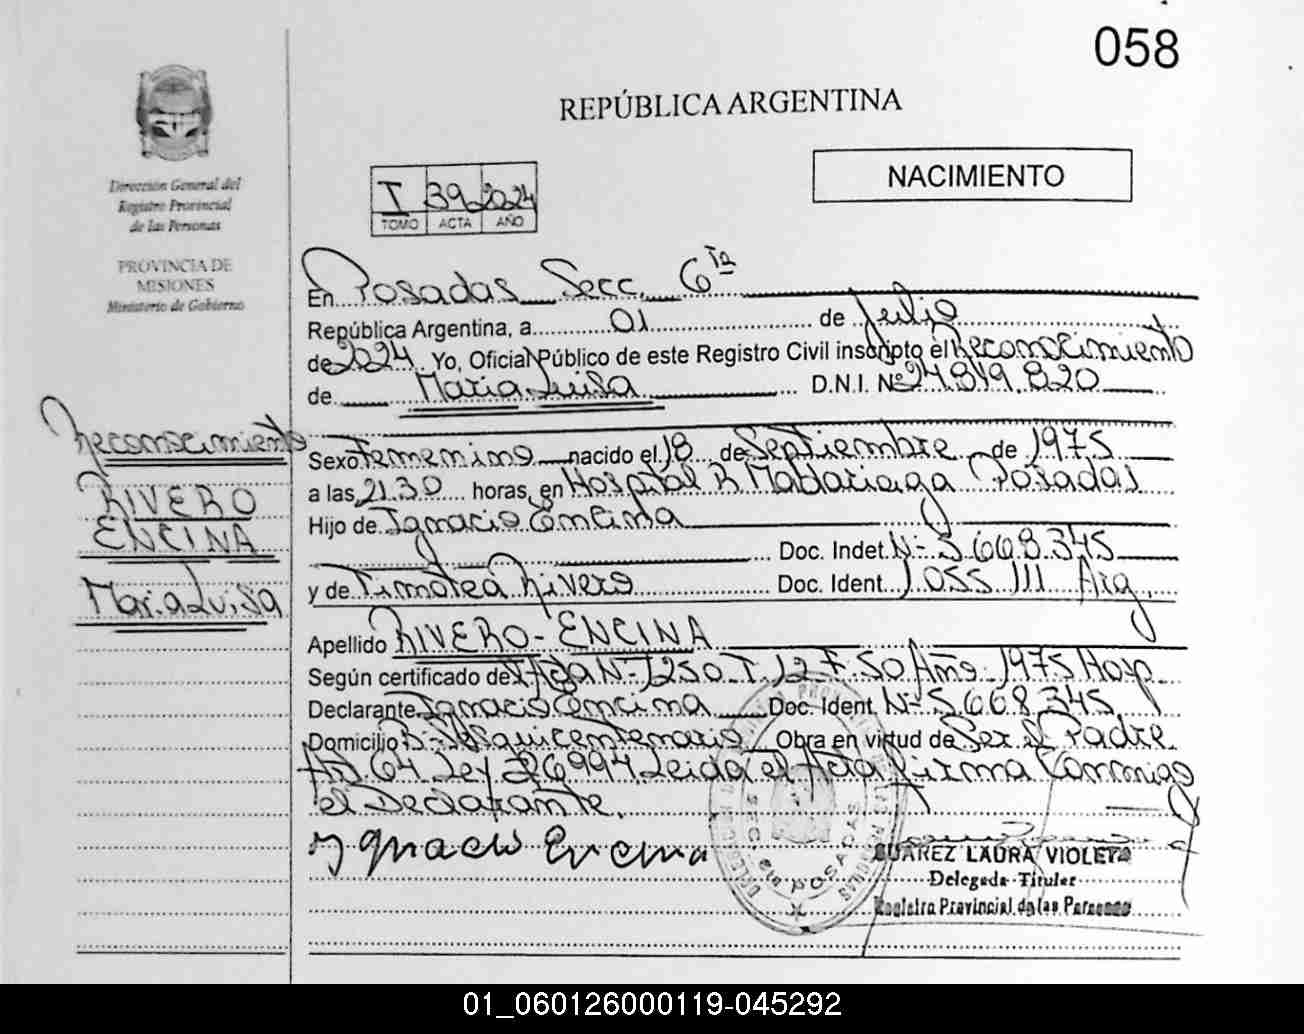 058
REPÚBLICA ARGENTINA
NACIMIENTO
Dirección General del
Registro Provincial
de las Personas
PROVINCIA DE
MISIONES
Ministerio de Gobierno
I 39 2024
TOMO ACTA AÑO
En Posadas Secc. 6ta
República Argentina, a 01 de Julio
de 2024 Yo, Oficial Público de este Registro Civil inscripto el Reconocimiento
de Maria Luisa D.N.I. Nº 24.849.820
Reconocimiento
RIVERO
ENCINA
Maria Luisa
Sexo Femenino nacido el 18 de Septiembre de 1975
a las 21.30 horas, en Hospital R Madariaga Posadas
Hijo de Ignacio Encina
Doc. Indet. Nº 5.668.345
y de Timotea Rivero Doc. Ident. 1.055.111 Arg.
Apellido RIVERO - ENCINA
Según certificado de Acta Nº 1250 T. 12 F. 50 Año 1975 Hosp.
Declarante Ignacio Encina Doc. Ident. Nº 5.668.345
Domicilio Bº Sesquicentenario Obra en virtud de Ser el Padre
Art. 64 Ley 26994 Leida el Acta firma Conmigo
el Declarante.
Ignacio Encina
SECC. 6ta POSADAS
SUAREZ LAURA VIOLETA
Delegada Titular
Registro Provincial de las Personas
01_060126000119-045292